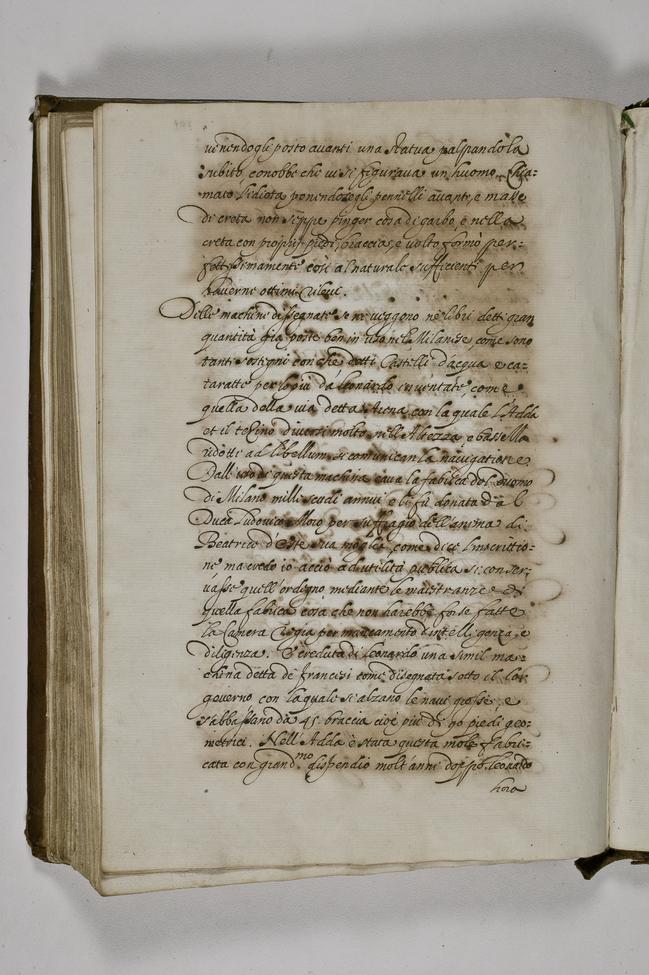 venendogli posto avanti una statua palpandola
subito conobbe che vi si figurava un huomo. Chia-
mato l'idiota ponendosegli pennelli avanti, e masse
di creta non seppe pinger cosa di garbo, e nella
creta con proprij piedi, braccia, e volto formò per-
fettissimamente così al naturale sufficienti per
haverne ottimi rilievi.
Delle machine dissegnate se ne veggono ne libri detti gran
quantità già poste ben in uso nel Milanese, come sono
tanti sostegni conche detti Castelli d'acqua e ca-
taratte per lo più da Leonardo inventate, come
quella della via detta Arena con la quale l'Adda
et il tesino diversi molto nell'Altezza e bassezza
ridotte ad libellum si comunican la navigatione
Dall' uso di questa machina cava la fabrica del Duomo
di Milano mille scudi annui e li fù donata dal
Duca Ludovico Moro per suffragio dell'anima di
Beatrice d'Este sua moglie, come dice l'inscrittio-
ne ma credo io acciò ad utilità publica si conser-
vasse quell'ordegno mediante le maestranze di
quella fabrica cosa che non harebbe forse fatto
la Camera Regia per mancamento d'intelligenza, e
diligenza. È creduta di Leonardo una simil ma-
china detta de Francesi come disegnata sotto il lor
governo con la quale si alzano le navi grosse, e
s'abbassano da 45 braccia cioè più di 90 piedi geo-
metrici. Nell'Adda è stata questa mole fabri-
cata con grandmo dispendio molt'anni doppo Leonardo
hora